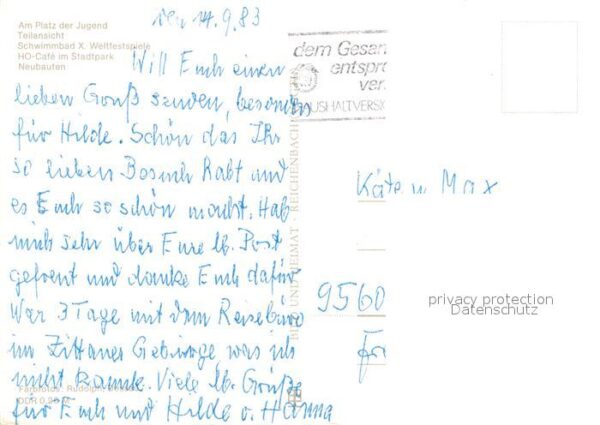 Am Platz der Jugend
Teilansicht
Schwimmbad X. Weltfestspiele
HO-Café im Stadtpark
Neubauten
den 14.9.83
Will Euch einen
lieben Gruß senden, besonders
für Hilde. Schön das Ihr
so lieben Besuch habt und
es Euch so schön macht. Hab
mich sehr über Eure lb. Post
gefreut und danke Euch dafür
War 3 Tage mit dem Reisebüro
im Zittauer Gebirge was ich
nicht kannte. Viele lb. Grüße
für Euch und Hilde v. Hanna
dem Gesam
entspre
vers
AUSHALTVERSI
BILD UND HEIMAT · REICHENBACH
Käte u Max
9560
privacy protection
Datenschutz
Farbfotos: Rudolph
DDR 0,20 M